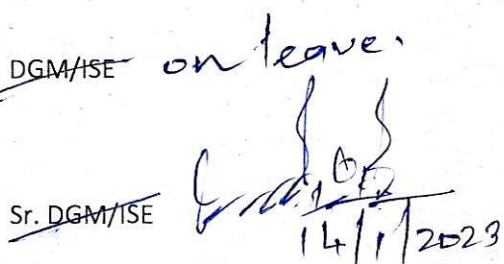 DGM/ISE on leave.
Sr. DGM/ISE
14/1/2023